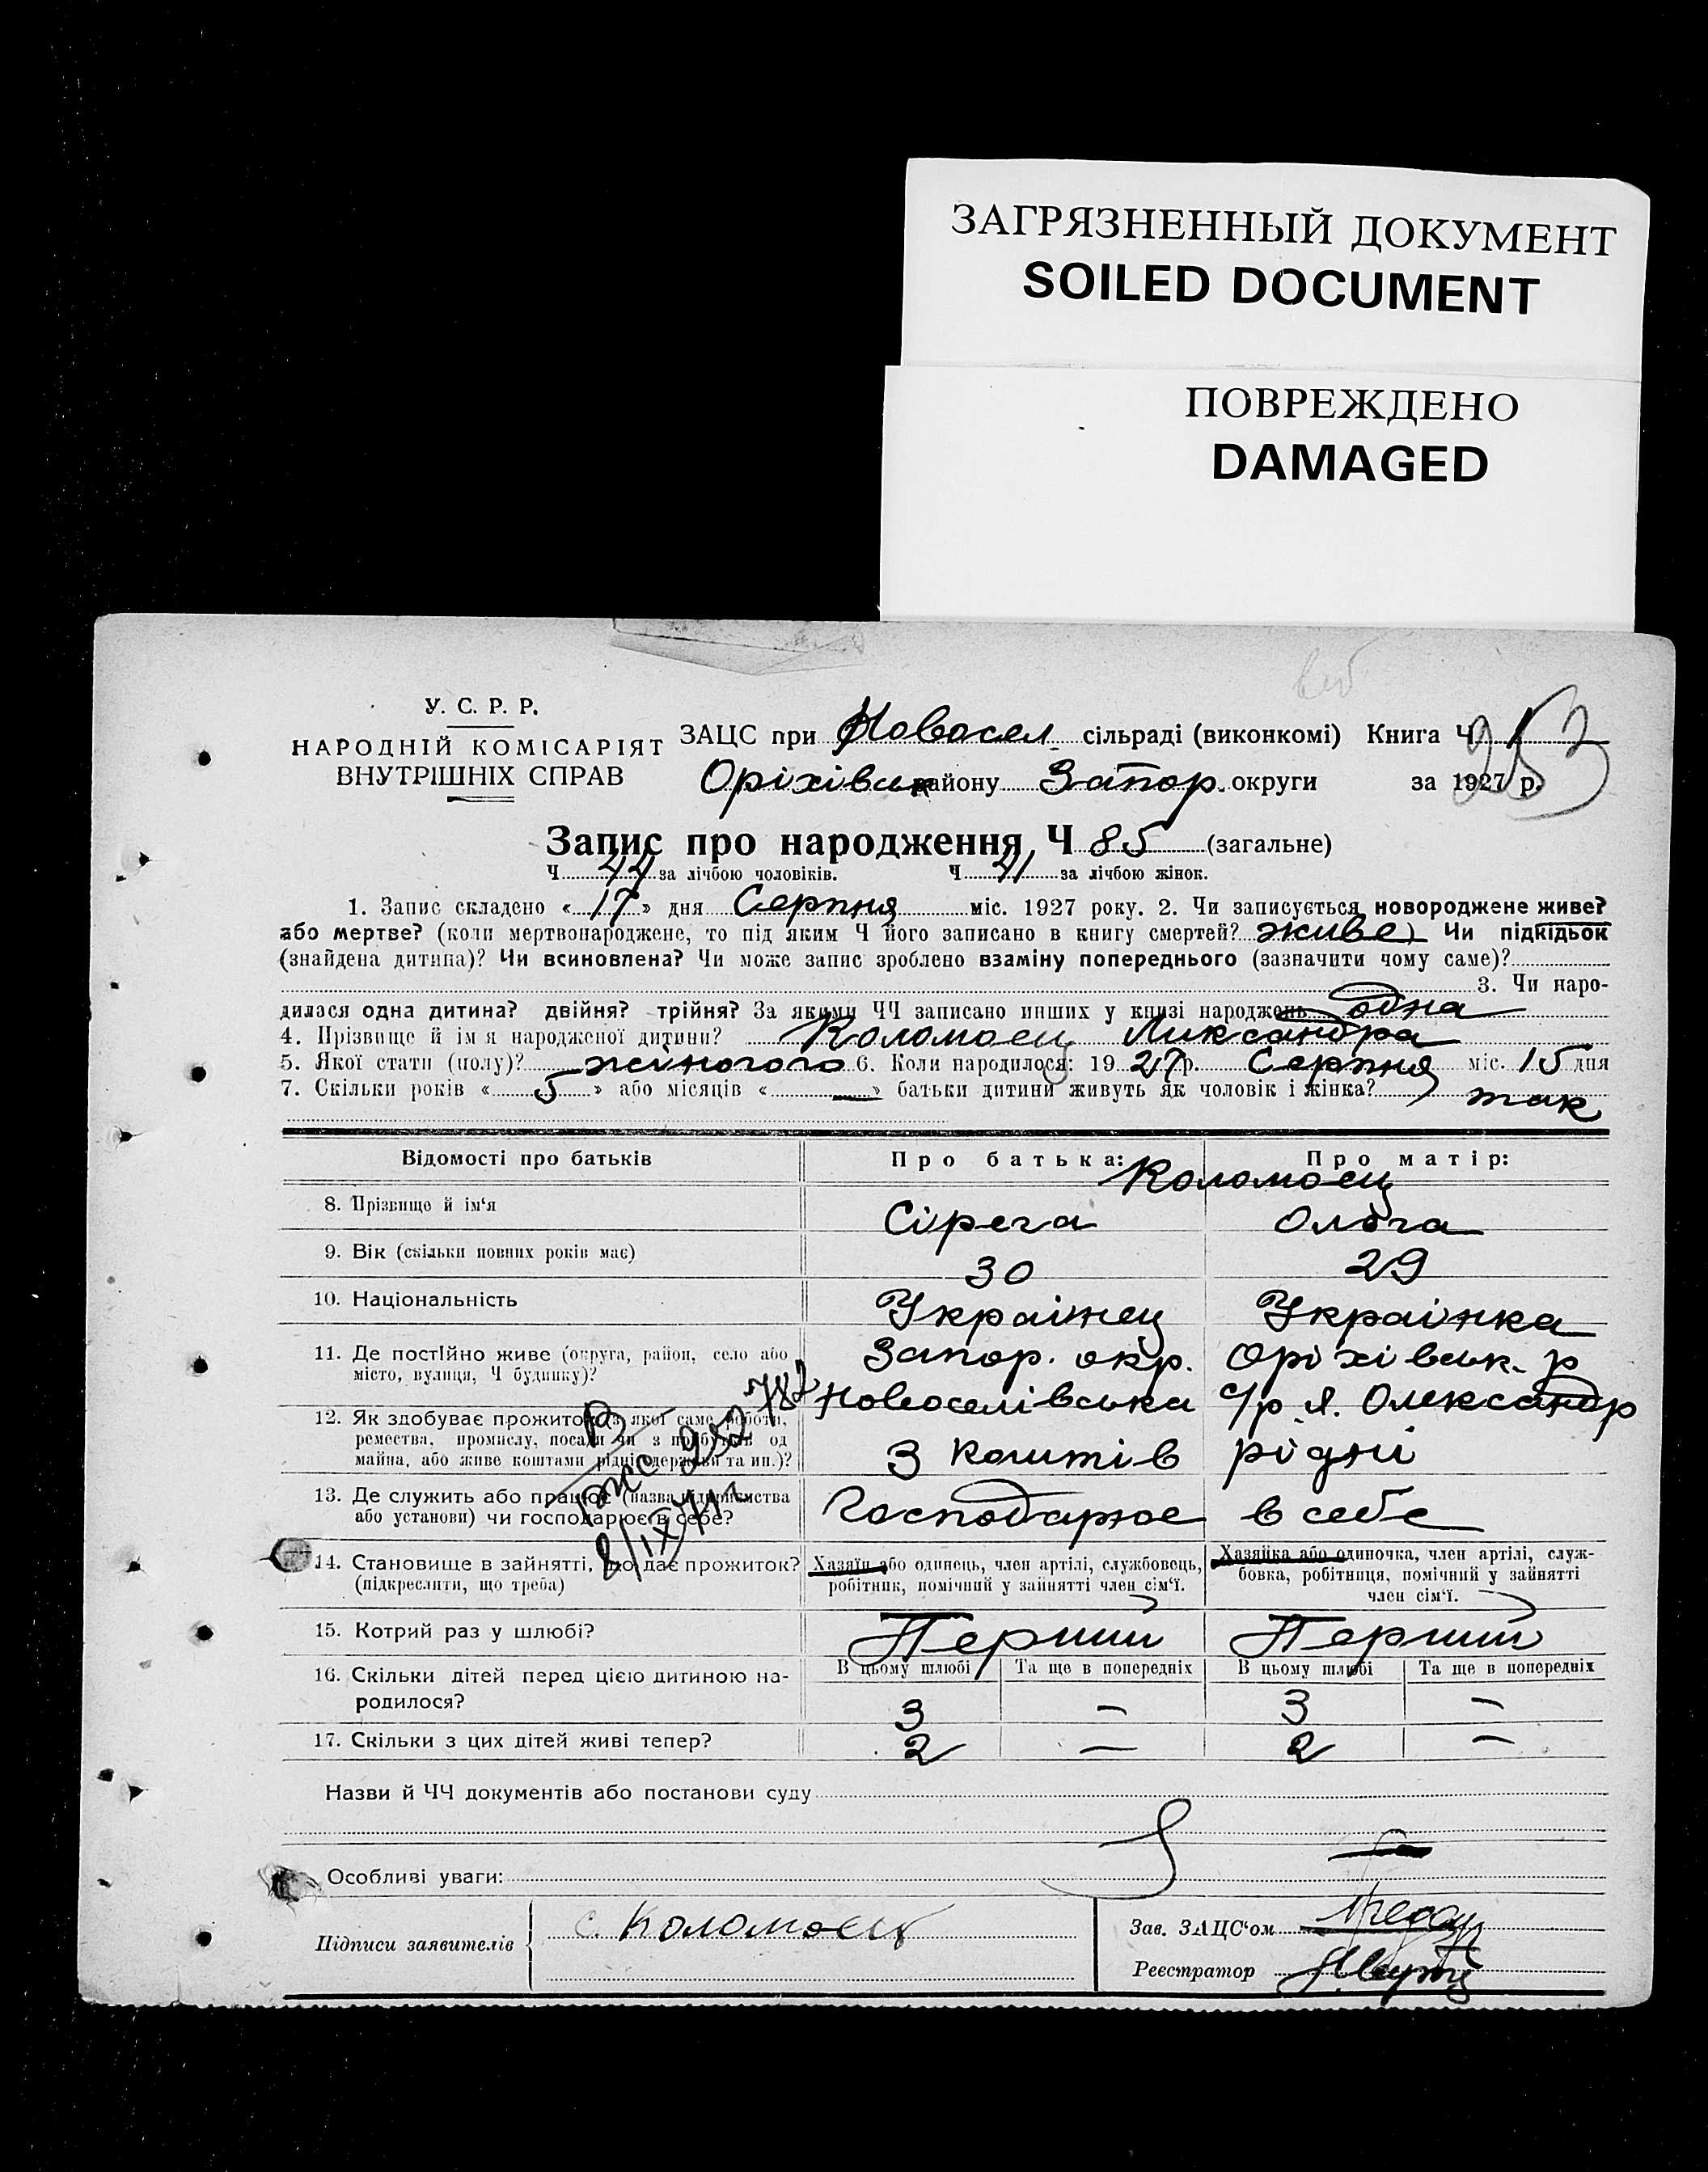 ЗАГРЯЗНЕННЫЙ ДОКУМЕНТ
SOILED DOCUMENT
ПОВРЕЖДЕНО
DAMAGED
У. С. Р. Р.
НАРОДНІЙ КОМІСАРІЯТ
ВНУТРІШНІХ СПРАВ
ЗАЦС при Новосел. сільраді (виконкомі) Книга Ч 1
253
Оріхівськ району Запор. округи за 1927 р.
Запис про народження Ч 85 (загальне)
Ч 44 за лічбою чоловіків. Ч 41 за лічбою жінок.
1. Запис складено « 17 » дня Серпня міс. 1927 року. 2. Чи записується новороджене живе?
або мертве? (коли мертвонароджене, то під яким Ч його записано в книгу смертей? живе) Чи підкідьок
(знайдена дитина)? Чи всиновлена? Чи може запис зроблено взаміну попереднього (зазначити чому саме)?
3. Чи наро-
дилася одна дитина? двійня? трійня? За якими ЧЧ записано инших у книзі народжень одна
4. Прізвище й ім'я народженої дитини? Коломоец Ликсандра
5. Якої стати (полу)? жіночого 6. Коли народилося: 1927 р. Серпня міс. 15 дня
7. Скільки років « 5 » або місяців « — » батьки дитини живуть як чоловік і жінка? так
Відомості про батьків Про батька: Про матір:
Коломоец
8. Прізвище й ім'я Сірега Ольга
9. Вік (скільки повних років має) 30 29
10. Національність Українец Українка
11. Де постійно живе (округа, район, село або місто, вулиця, Ч будинку)? Запор. окр. Оріхівськ. р
Новоселівська с/р Я. Олександр
12. Як здобуває прожиток (з якої саме роботи,
ремества, промислу, посади чи з прибутків од
майна, або живе коштами рідні, держави та ин.)? З коштів рідні
13. Де служить або працює (назва підприємства
або установи) чи господарює в себе? Господарює в себе
8/IX 71
14. Становище в зайнятті, що дає прожиток?
(підкреслити, що треба)
Хазяїн або одинець, член артілі, службовець,
робітник, помічний у зайнятті член сім'ї.
Хазяйка або одиночка, член артілі, служ-
бовка, робітниця, помічний у зайнятті
член сім'ї.
15. Котрий раз у шлюбі? Перший Перший
В цьому шлюбі Та ще в попередніх В цьому шлюбі Та ще в попередніх
16. Скільки дітей перед цією дитиною на-
родилося? 3 — 3 —
17. Скільки з цих дітей живі тепер? 2 — 2 —
Назви й ЧЧ документів або постанови суду
Особливі уваги:
Підписи заявителів С. Коломоець
Зав. ЗАЦС'ом
Реєстратор